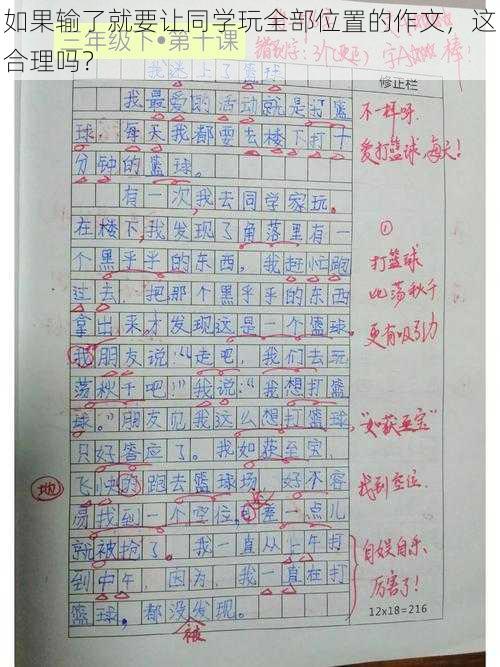 如果输了就要让同学玩全部位置的作文，这
合理吗？
三年级下•第十课
错别字：3个(更正) 字A 棒！
我迷上了篮球
修正栏
我最爱的活动就是打篮
球，每天我都要去楼下打十
分钟的篮球。
有一次，我去同学家玩。
在楼下，我发现了角落里有一
个黑乎乎的东西，我赶忙跑
过去，把那个黑乎乎的东西
拿出来才发现这是一个篮球。
我朋友说：“走吧，我们去玩
荡秋千吧！”我说：“我想打篮
球。”朋友见我这么想打篮球，
只好答应了。我如获至宝，
飞快的跑去篮球场，好不容
易找到一个空位，差一点儿
就被抢了。我一直从上午打
到中午，因为，我一直在打
篮球，都没发现。
地
被
不一样呀，
爱打篮球，每天！
①
打篮球
比荡秋千
更有吸引力
“如获至宝”
找到空位，
自娱自乐、
厉害了！
12x18=216